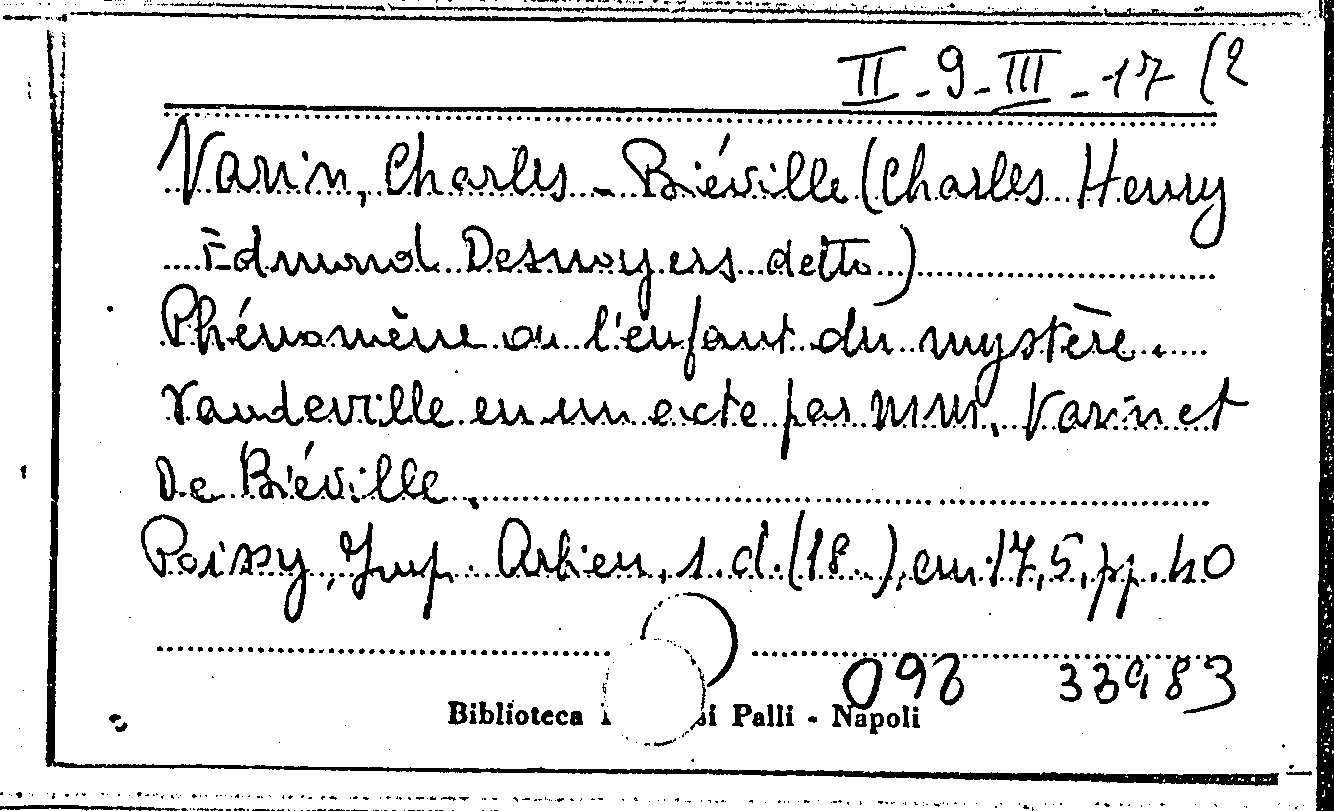 II-9-III-17 (2
Varin, Charles - Biéville (Charles Henry
Edmund Desnoyers detto)
Phénomène ou l'enfant du mystère.
Vaudeville en un acte par MM. Varin et
De Biéville.
Poissy, Imp. Arbieu, s.d. (18..), cm. 17,5, pp. 40
098 33983
Biblioteca Palli - Napoli